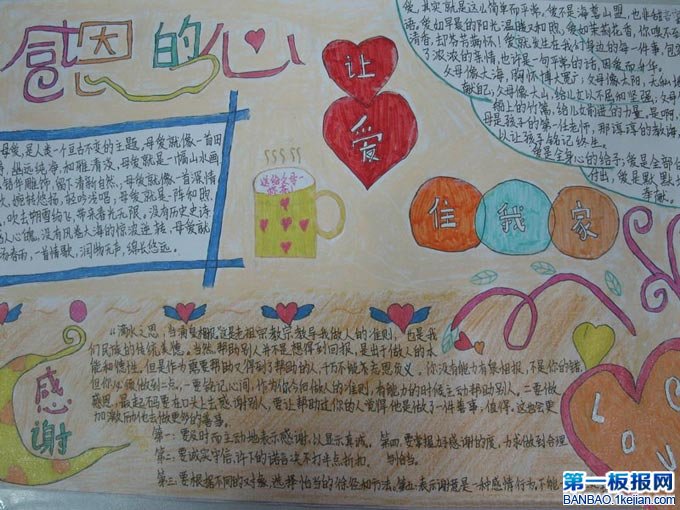 感恩的心
让
爱
住我家
爱,其实就是这么简单而平常。爱不是海誓山盟,也非
语,爱如早晨的阳光温暖又和煦,爱如茉莉花香,
清香,却
了浓浓的亲情,也许是一句平常的话,因爱而升华。
父母像大海,胸怀博大宽广;父母像太阳,无私地
献自己;父母像大山,给儿女以不屈和坚强;父母
给儿女前进的力量,是啊,
母是孩子的第一任老师,那谆谆的教诲,
以让孩子铭记终生。
爱是全身心的给予,爱是全部
付出,爱是默默
母爱,是人类一个亘古不变的主题,母爱就像一首田
幽远纯净,和雅清淡,母爱就是一幅山水画,
留下清新自然,母爱就像一首深情
婉转悠扬,轻吟浅唱,母爱就是一阵和煦
吹去朔雪纷飞,带来春光无限,没有历史诗
人心魄,没有风卷大海的惊波逆转,母爱就
春雨,一首情歌,润物无声,绵长悠远。
送给父母一
杯茶
感
谢
“滴水之恩,当涌泉相报”这是老祖宗教导我做人的准则,也是我
们民族的传统美德。当然,帮助别人并不是想得到回报,是出于做人的本
能和德性。但是作为需要帮助又得到了帮助的人,千万不能忘恩负义,你没有能力有恩相报,不是你的错,
但你必须做到二点,一要铭记心间,作为你今后做人的准则,有能力的时候主动帮助别人。二要做
感恩,最起码要在口头上去感谢别人,要让帮助过你的人觉得他是做了一件善事,值得,这也会更
加激励他去做更多的善事。
第一:要及时而主动地表示感谢,以显示真诚。 第四:要掌握好感谢的度,力求做到合理
第二:要诚实守信,许下的诺言决不打半点折扣。 与恰当。
第三:要根据不同的对象,选择恰当的途径和方法。第五:表示谢意是一种感情行为,不能
L O
V
第一板报网
BANBAO.1kejian.com